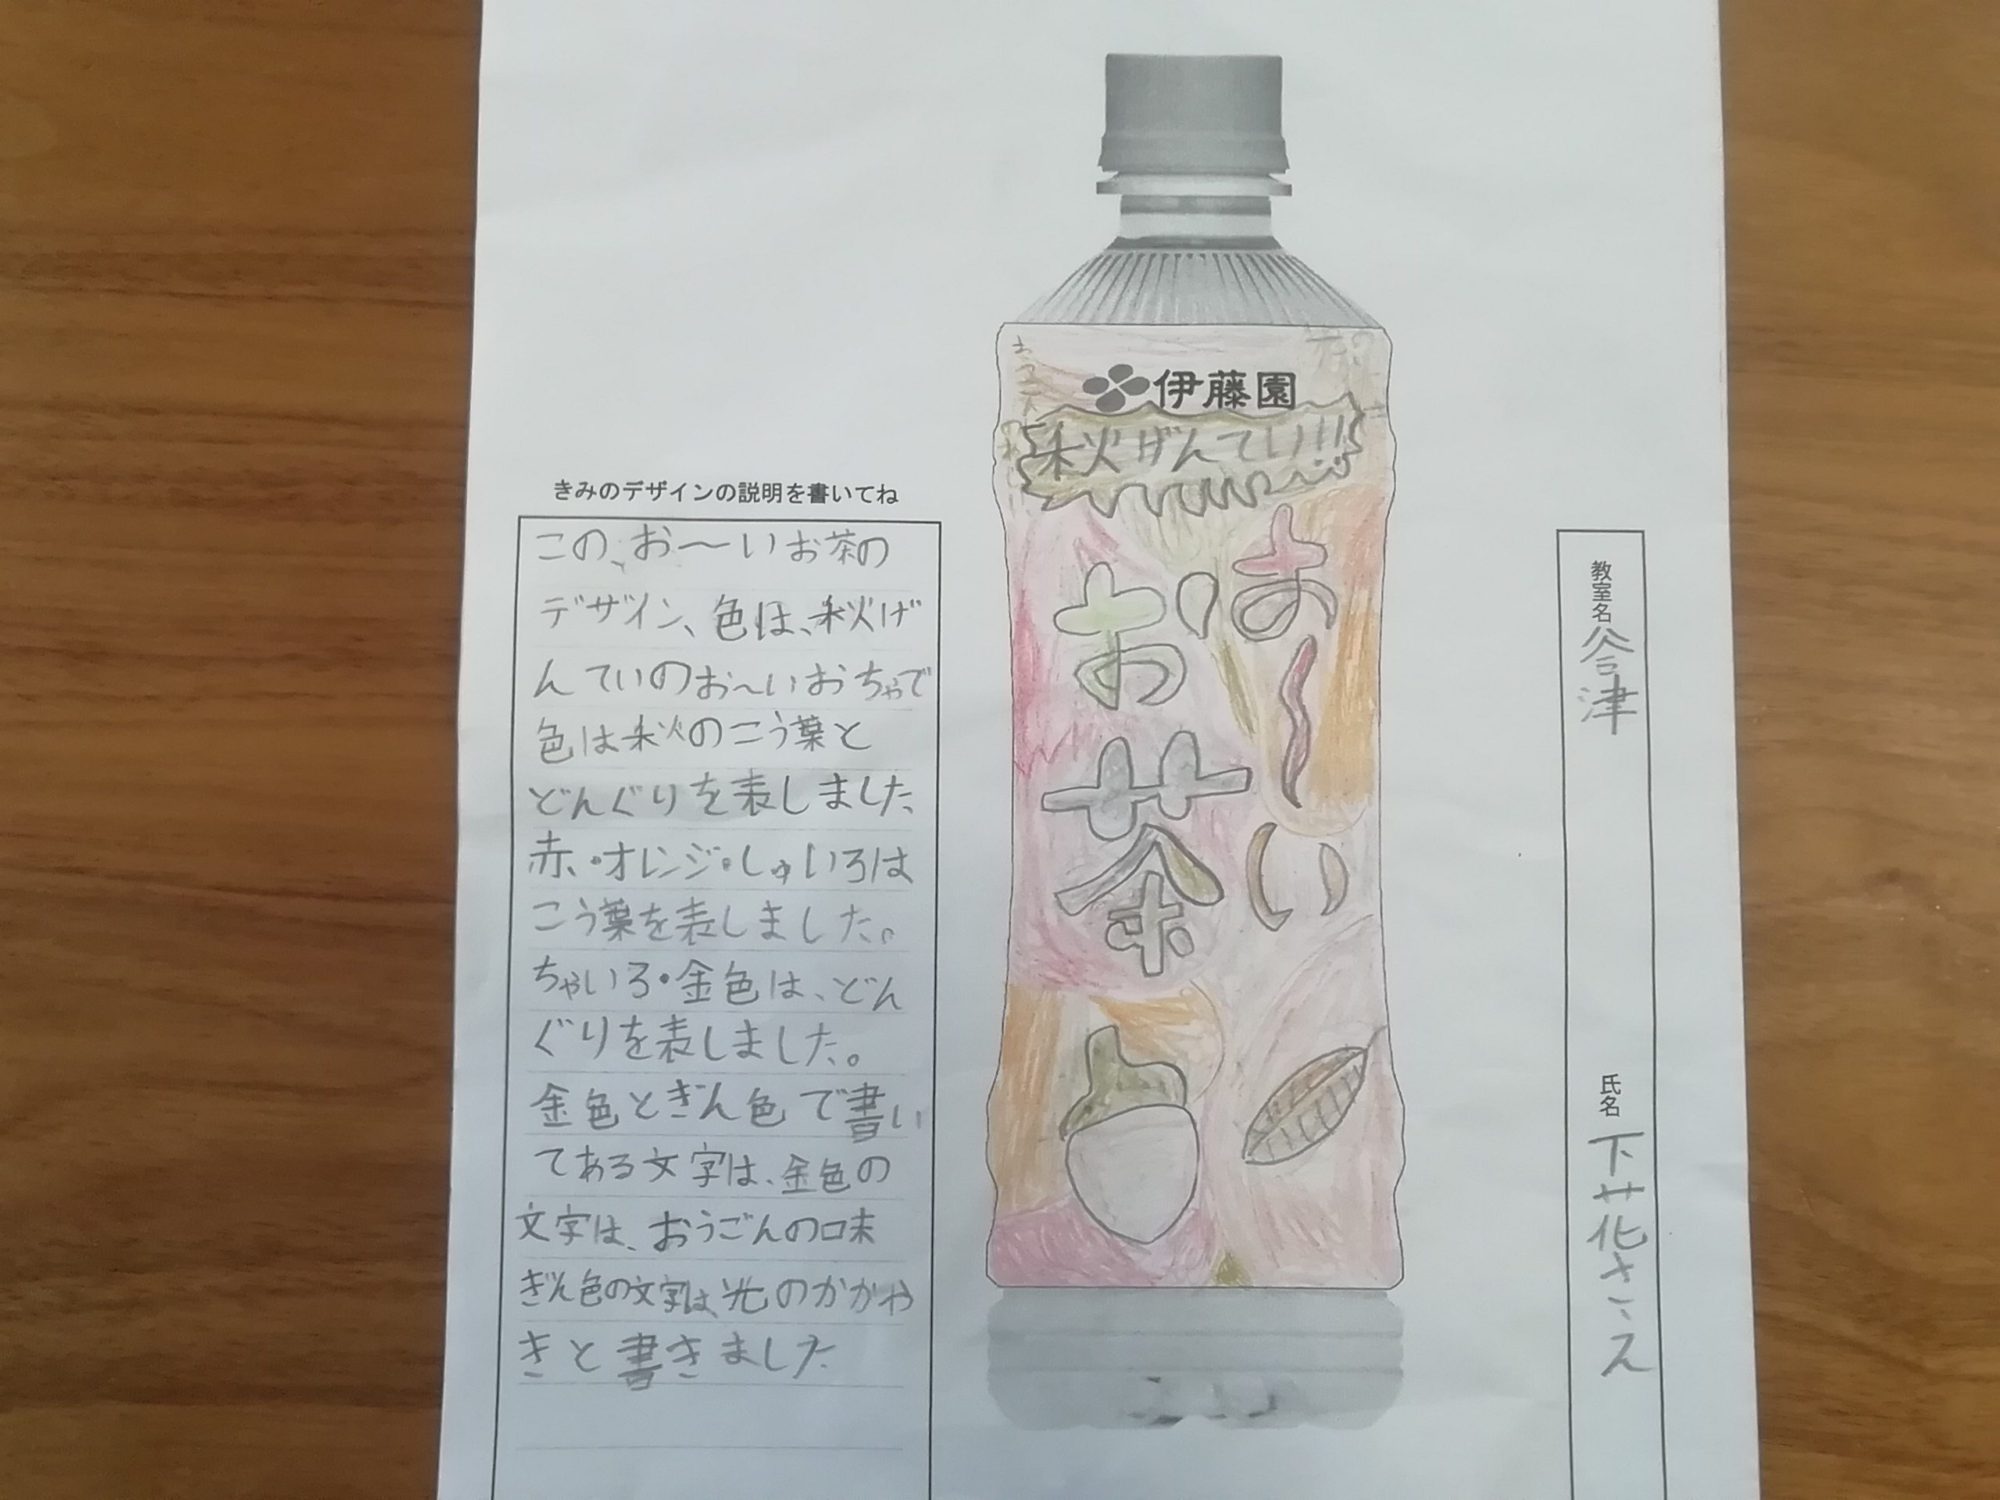 伊藤園
秋げんてい!!
お〜い
お茶
きみのデザインの説明を書いてね
この、お〜いお茶の
デザイン、色は、秋げ
んていのお〜いおちゃで
色は秋のこう葉と
どんぐりを表しました
赤・オレンジ・しゅいろは
こう葉を表しました。
ちゃいろ・金色は、どん
ぐりを表しました。
金色とぎん色で書い
てある文字は、金色の
文字は、おうごんの味
ぎん色の文字は、光のかがや
きと書きました
教室名 会津
氏名 下花さえ